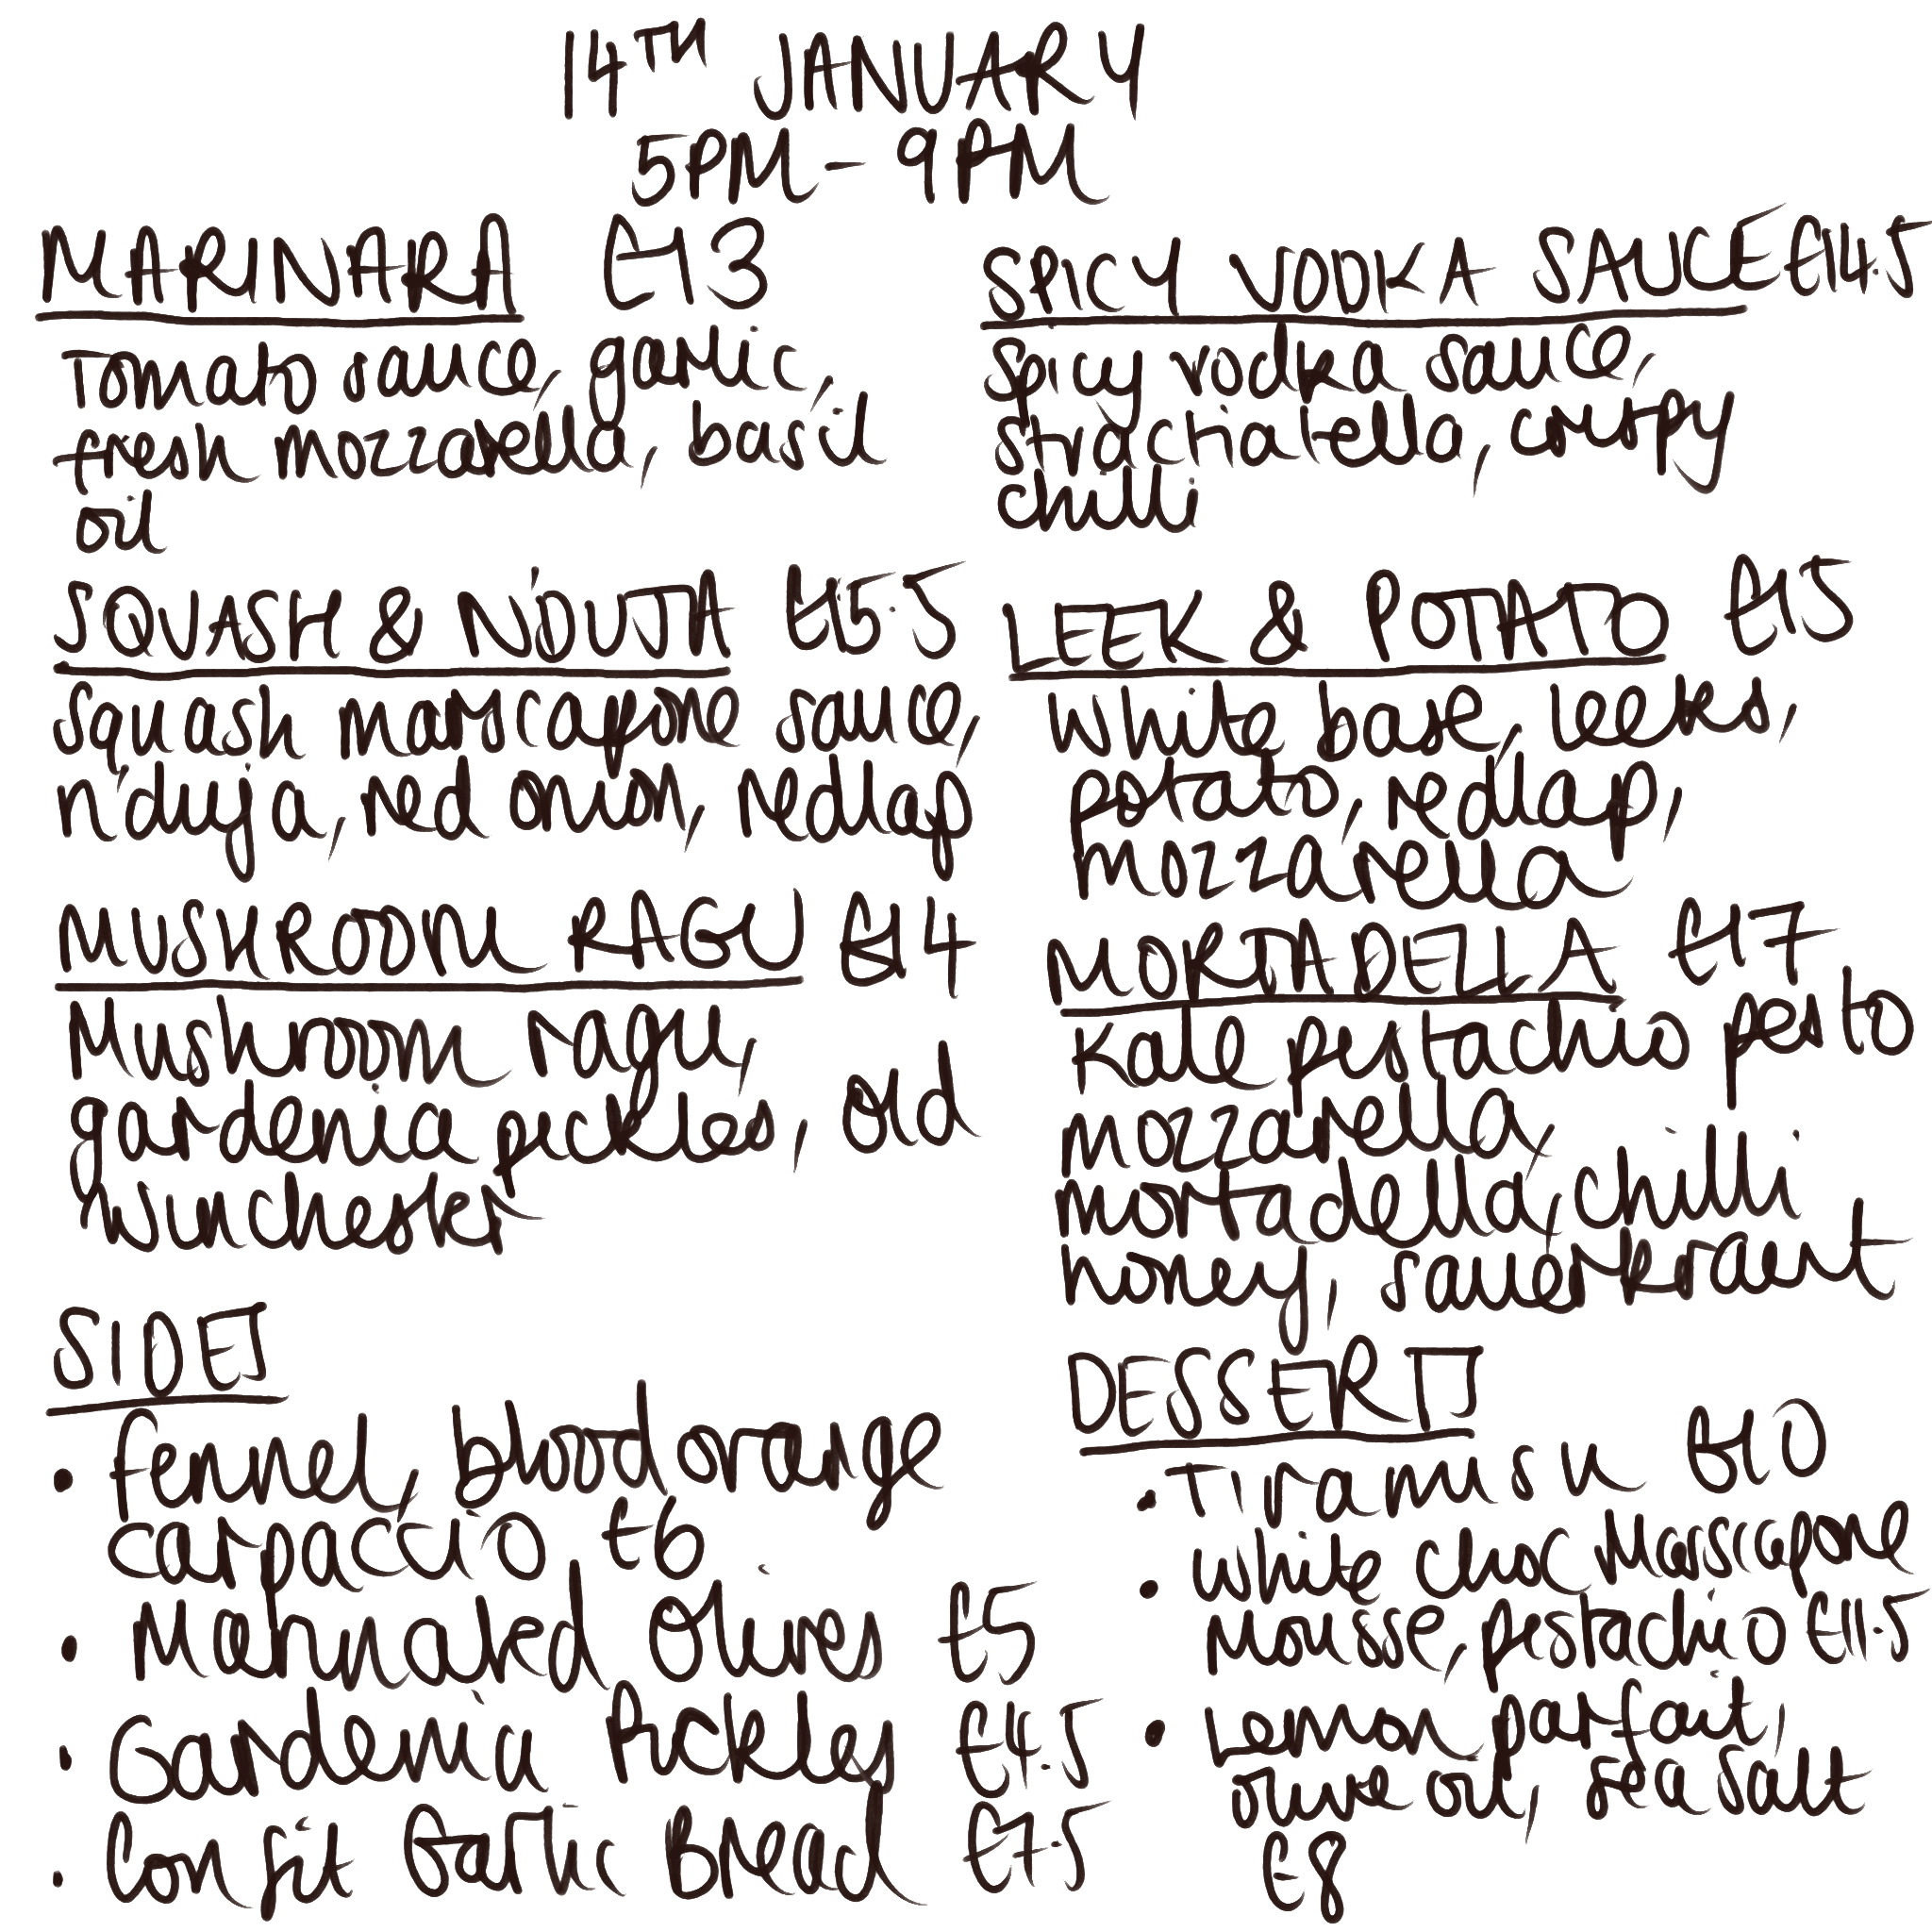 14TH JANUARY
5PM - 9PM
MARINARA £13
Tomato sauce, garlic,
fresh mozzarella, basil
oil
SQUASH & N'DUJA £15.5
Squash marscapone sauce,
n'duja, red onion, redlap
MUSHROOM RAGU £14
Mushroom ragu,
gardenia pickles, old
Winchester
SIDES
• Fennel, blood orange
carpaccio £6
• Marinated Olives £5
• Gardenia Pickles £4.5
• Confit Garlic Bread £7.5
SPICY VODKA SAUCE £14.5
Spicy vodka sauce,
strachiatella, crispy
chilli
LEEK & POTATO £15
White base, leeks,
potato, redlap,
mozzarella
MORTADELLA £17
Kale pistachio pesto
mozzarella,
mortadella, chilli
honey, sauerkraut
DESSERTS
• Tiramisu £10
• White choc Marscapone
Mousse, pistachio £11.5
• Lemon parfait,
olive oil, sea salt
£8